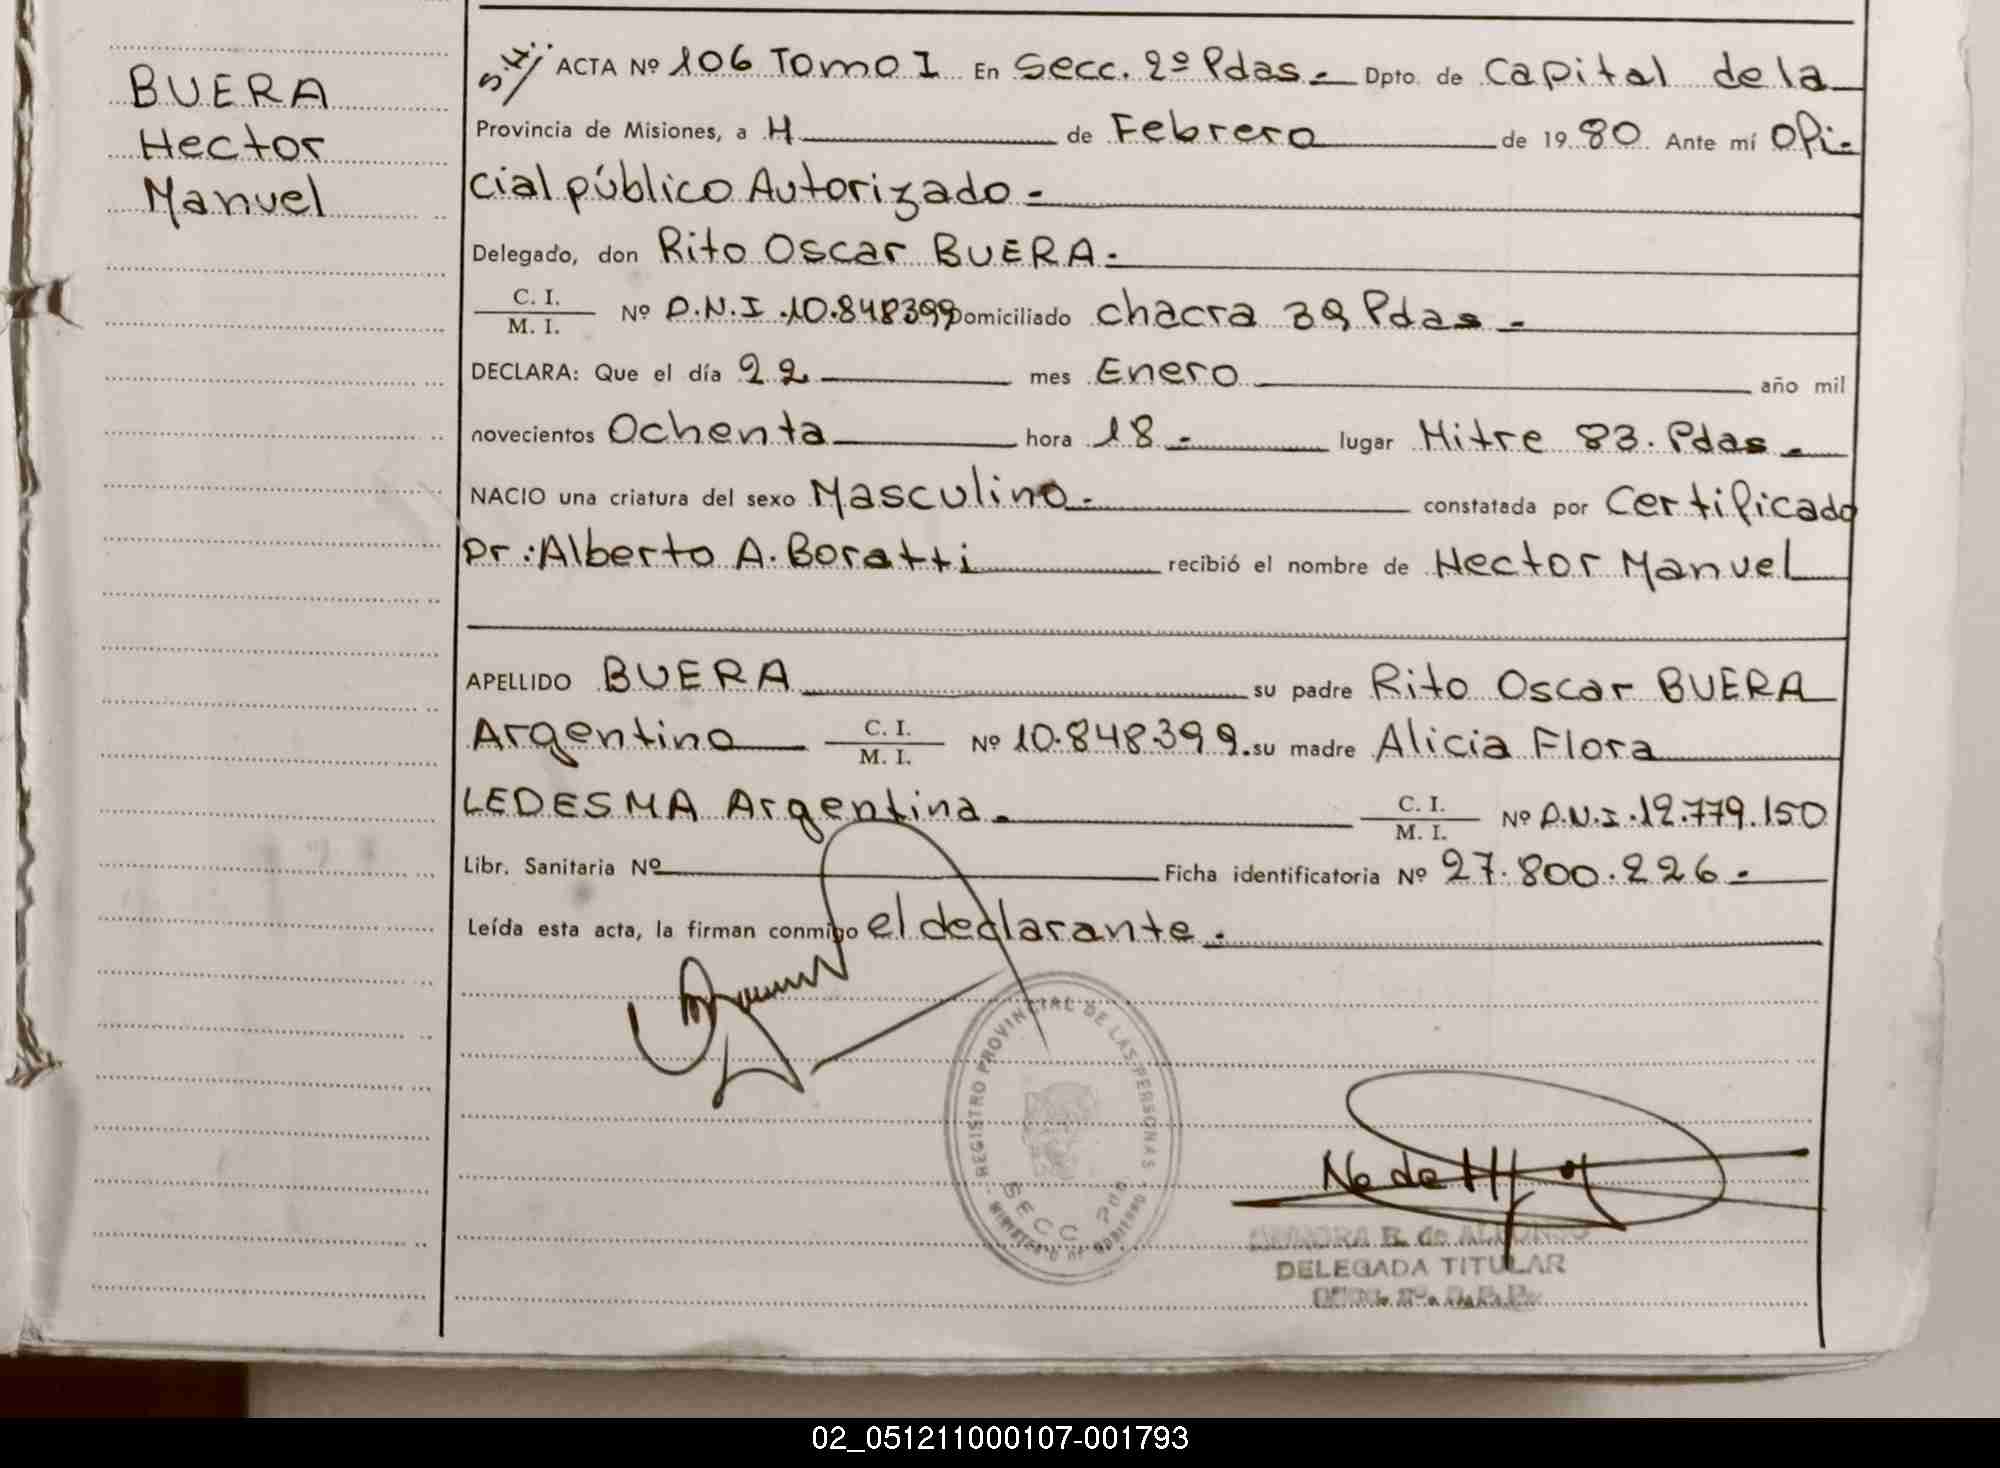 BUERA
Hector
Manuel
54// ACTA Nº 106 Tomo I En Secc. 2º Pdas.- Dpto. de Capital de la
Provincia de Misiones, a 4 de Febrero de 1980 Ante mí Ofi-
cial público Autorizado.-
Delegado, don Rito Oscar BUERA.-
C. I.
M. I. Nº D.N.I. 10.848399 Domiciliado chacra 39 Pdas.-
DECLARA: Que el día 22 mes Enero año mil
novecientos Ochenta hora 18.- lugar Mitre 83. Pdas.-
NACIO una criatura del sexo Masculino.- constatada por Certificado
Dr.: Alberto A. Boratti recibió el nombre de Hector Manuel
APELLIDO BUERA su padre Rito Oscar BUERA
Argentino C. I.
M. I. Nº 10.848.399. su madre Alicia Flora
LEDESMA Argentina.- C. I.
M. I. Nº D.N.I. 12.779.150
Libr. Sanitaria Nº Ficha identificatoria Nº 27.800.226.-
Leída esta acta, la firman conmigo el declarante.-
REGISTRO PROVINCIAL DE LAS PERSONAS
SECC 2da
MINISTERIO DE GOBIERNO
R. de
DELEGADA TITULAR
02_051211000107-001793